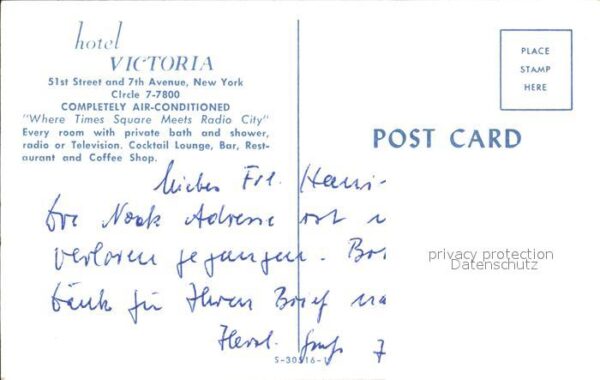 hotel
VICTORIA
51st Street and 7th Avenue, New York
CIrcle 7-7800
COMPLETELY AIR-CONDITIONED
"Where Times Square Meets Radio City"
Every room with private bath and shower,
radio or Television. Cocktail Lounge, Bar, Rest-
aurant and Coffee Shop.
PLACE
STAMP
HERE
POST CARD
Frl.
Adresse ist
verloren gegangen.
für Ihren Brief
Herzl. Gruß
privacy protection
Datenschutz
S-30516-1